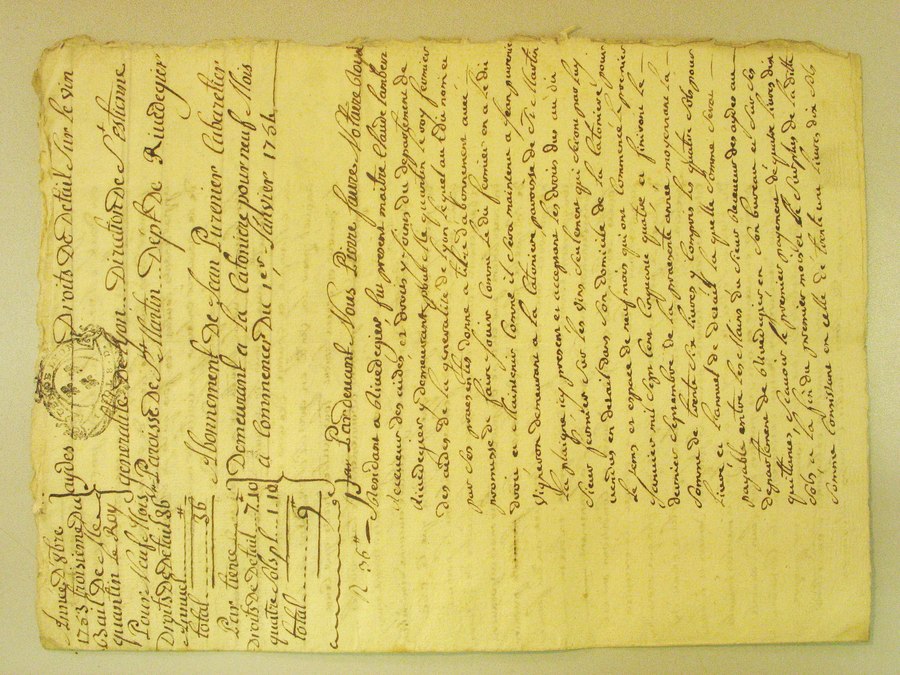 Année D'8bre
1753 troisième du
Bail De Me
quantin le Roy
Pour Neuf Mois
Droits de détail 36
Annuel
total 36
Par tierce
Droits de Détail 7.10
quatre sols pl. 1.10
total 9
aydes Droits De Détail Sur le vin
generalité De Lyon Direction De St Estienne
Paroisse De St Martin Dept De Rivedegier
Abonnement De Jean Cabaretier
Demeurant a la pour neuf Mois
a Commencer Du 1er Janvier 1754
R 36
Pardevant Nous Pierre faure Notaire Royal
Residant a Rivedegier fut present maitre Claude
Receveur des aides et droits y joints du departement de
Rivedegier y demeurant Me quantin le roy fermier
des aydes de la generalité de lyon lequel audit nom a
par ces presentes donné a titre d'abonnement avec
promesse de faire jouir comme le dit fermier en a le dit
droit et Maintenir comme il sera maintenu a Jean
Vigneron demeurant a la paroisse de St Martin
La plaigne icy present et acceptant les droits dus au dit
Sieur fermier sur les vins seulement qui seront par luy
vendus en detail dans son domicile de pour
le tems et espace de neuf mois qui ont commencé le premier
Janvier mil sept cens cinquante quatre et finiront le
dernier septembre de la presente année moyennant la
somme de trente six livres y compris les quatre sols pour
livre et l'annuel de detail laquelle somme sera
payable entre les Mains du sieur Receveur des aydes au
departement de Rivedegier en son bureau et sur ses
quittances, Scavoir le premier payement de quatre livres dix
sols a la fin du premier mois et le surplus de la ditte
somme consistant en celle de trente un livres dix sols